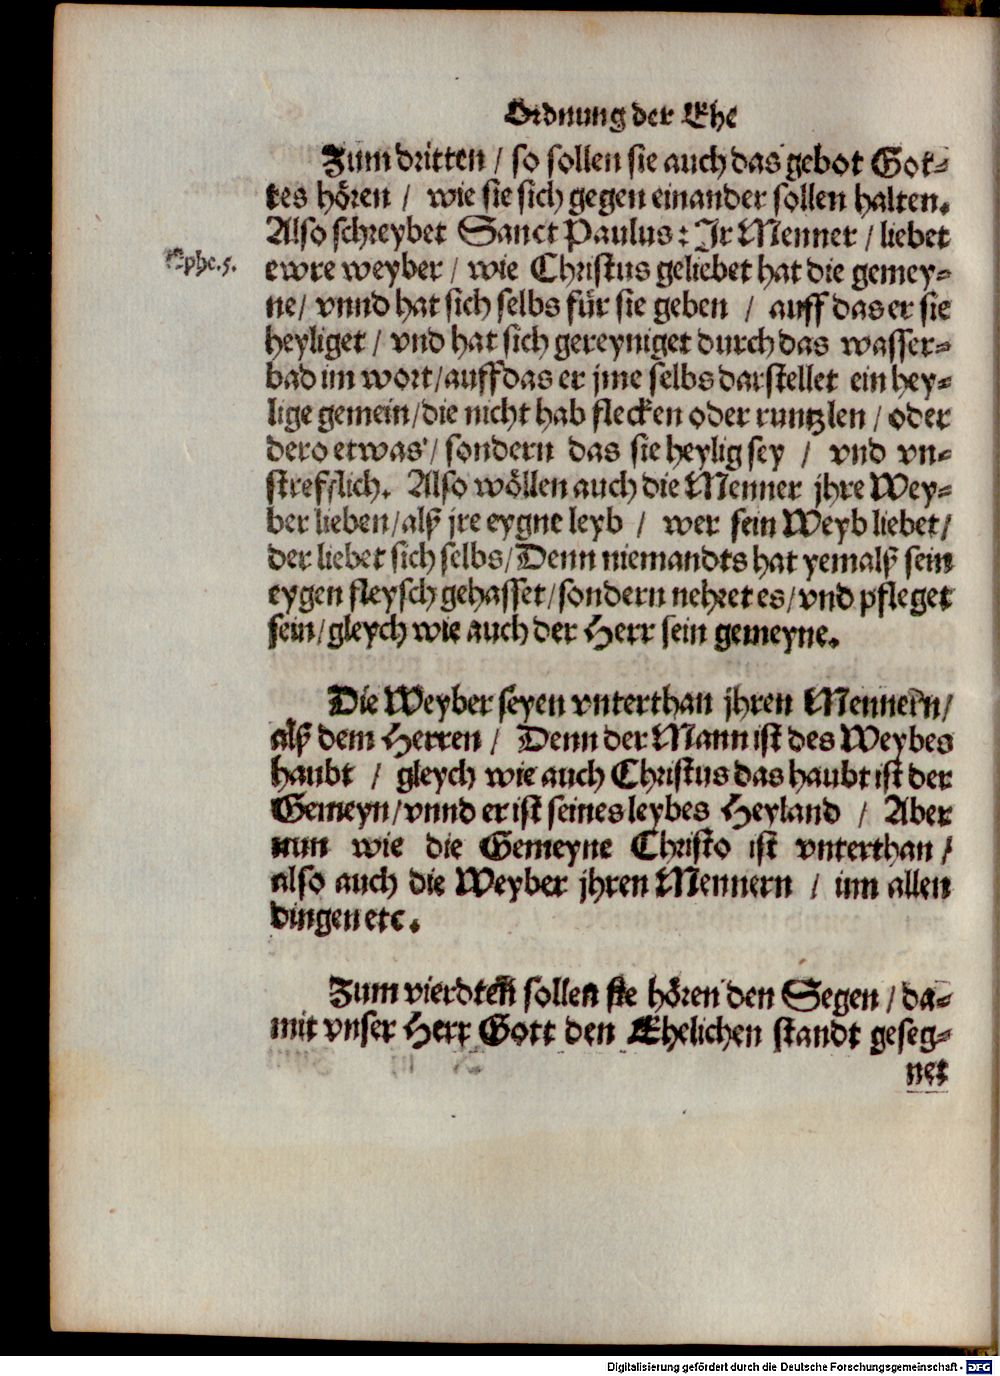 Ordnung der Ehe
Zum dritten / so sollen sie auch das gebot Got-
tes hören / wie sie sich gegen einander sollen halten.
Also schreybet Sanct Paulus: Jr Menner / liebet
Ephe.5.
ewre weyber / wie Christus geliebet hat die gemey-
ne / vnnd hat sich selbs für sie geben / auff das er sie
heyliget / vnd hat sich gereyniget durch das wasser-
bad im wort / auff das er jme selbs darstellet ein hey-
lige gemein / die nicht hab flecken oder runtzlen / oder
dero etwas / sondern das sie heylig sey / vnd vn-
strefflich. Also wöllen auch die Menner jhre Wey-
ber lieben / alß jre eygne leyb / wer sein Weyb liebet /
der liebet sich selbs / Denn niemandts hat yemalß sein
eygen fleysch gehasset / sondern nehret es / vnd pfleget
sein / gleych wie auch der Herr sein gemeyne.
Die Weyber seyen vnterthan jhren Mennern /
alß dem Herren / Denn der Mann ist des Weybes
haubt / gleych wie auch Christus das haubt ist der
Gemeyn / vnnd er ist seines leybes Heyland / Aber
nun wie die Gemeyne Christo ist vnterthan /
also auch die Weyber jhren Mennern / inn allen
dingen etc.
Zum vierdten sollen sie hören den Segen / da-
mit vnser Herr Gott den Ehelichen standt geseg-
net
Digitalisierung gefördert durch die Deutsche Forschungsgemeinschaft - DFG